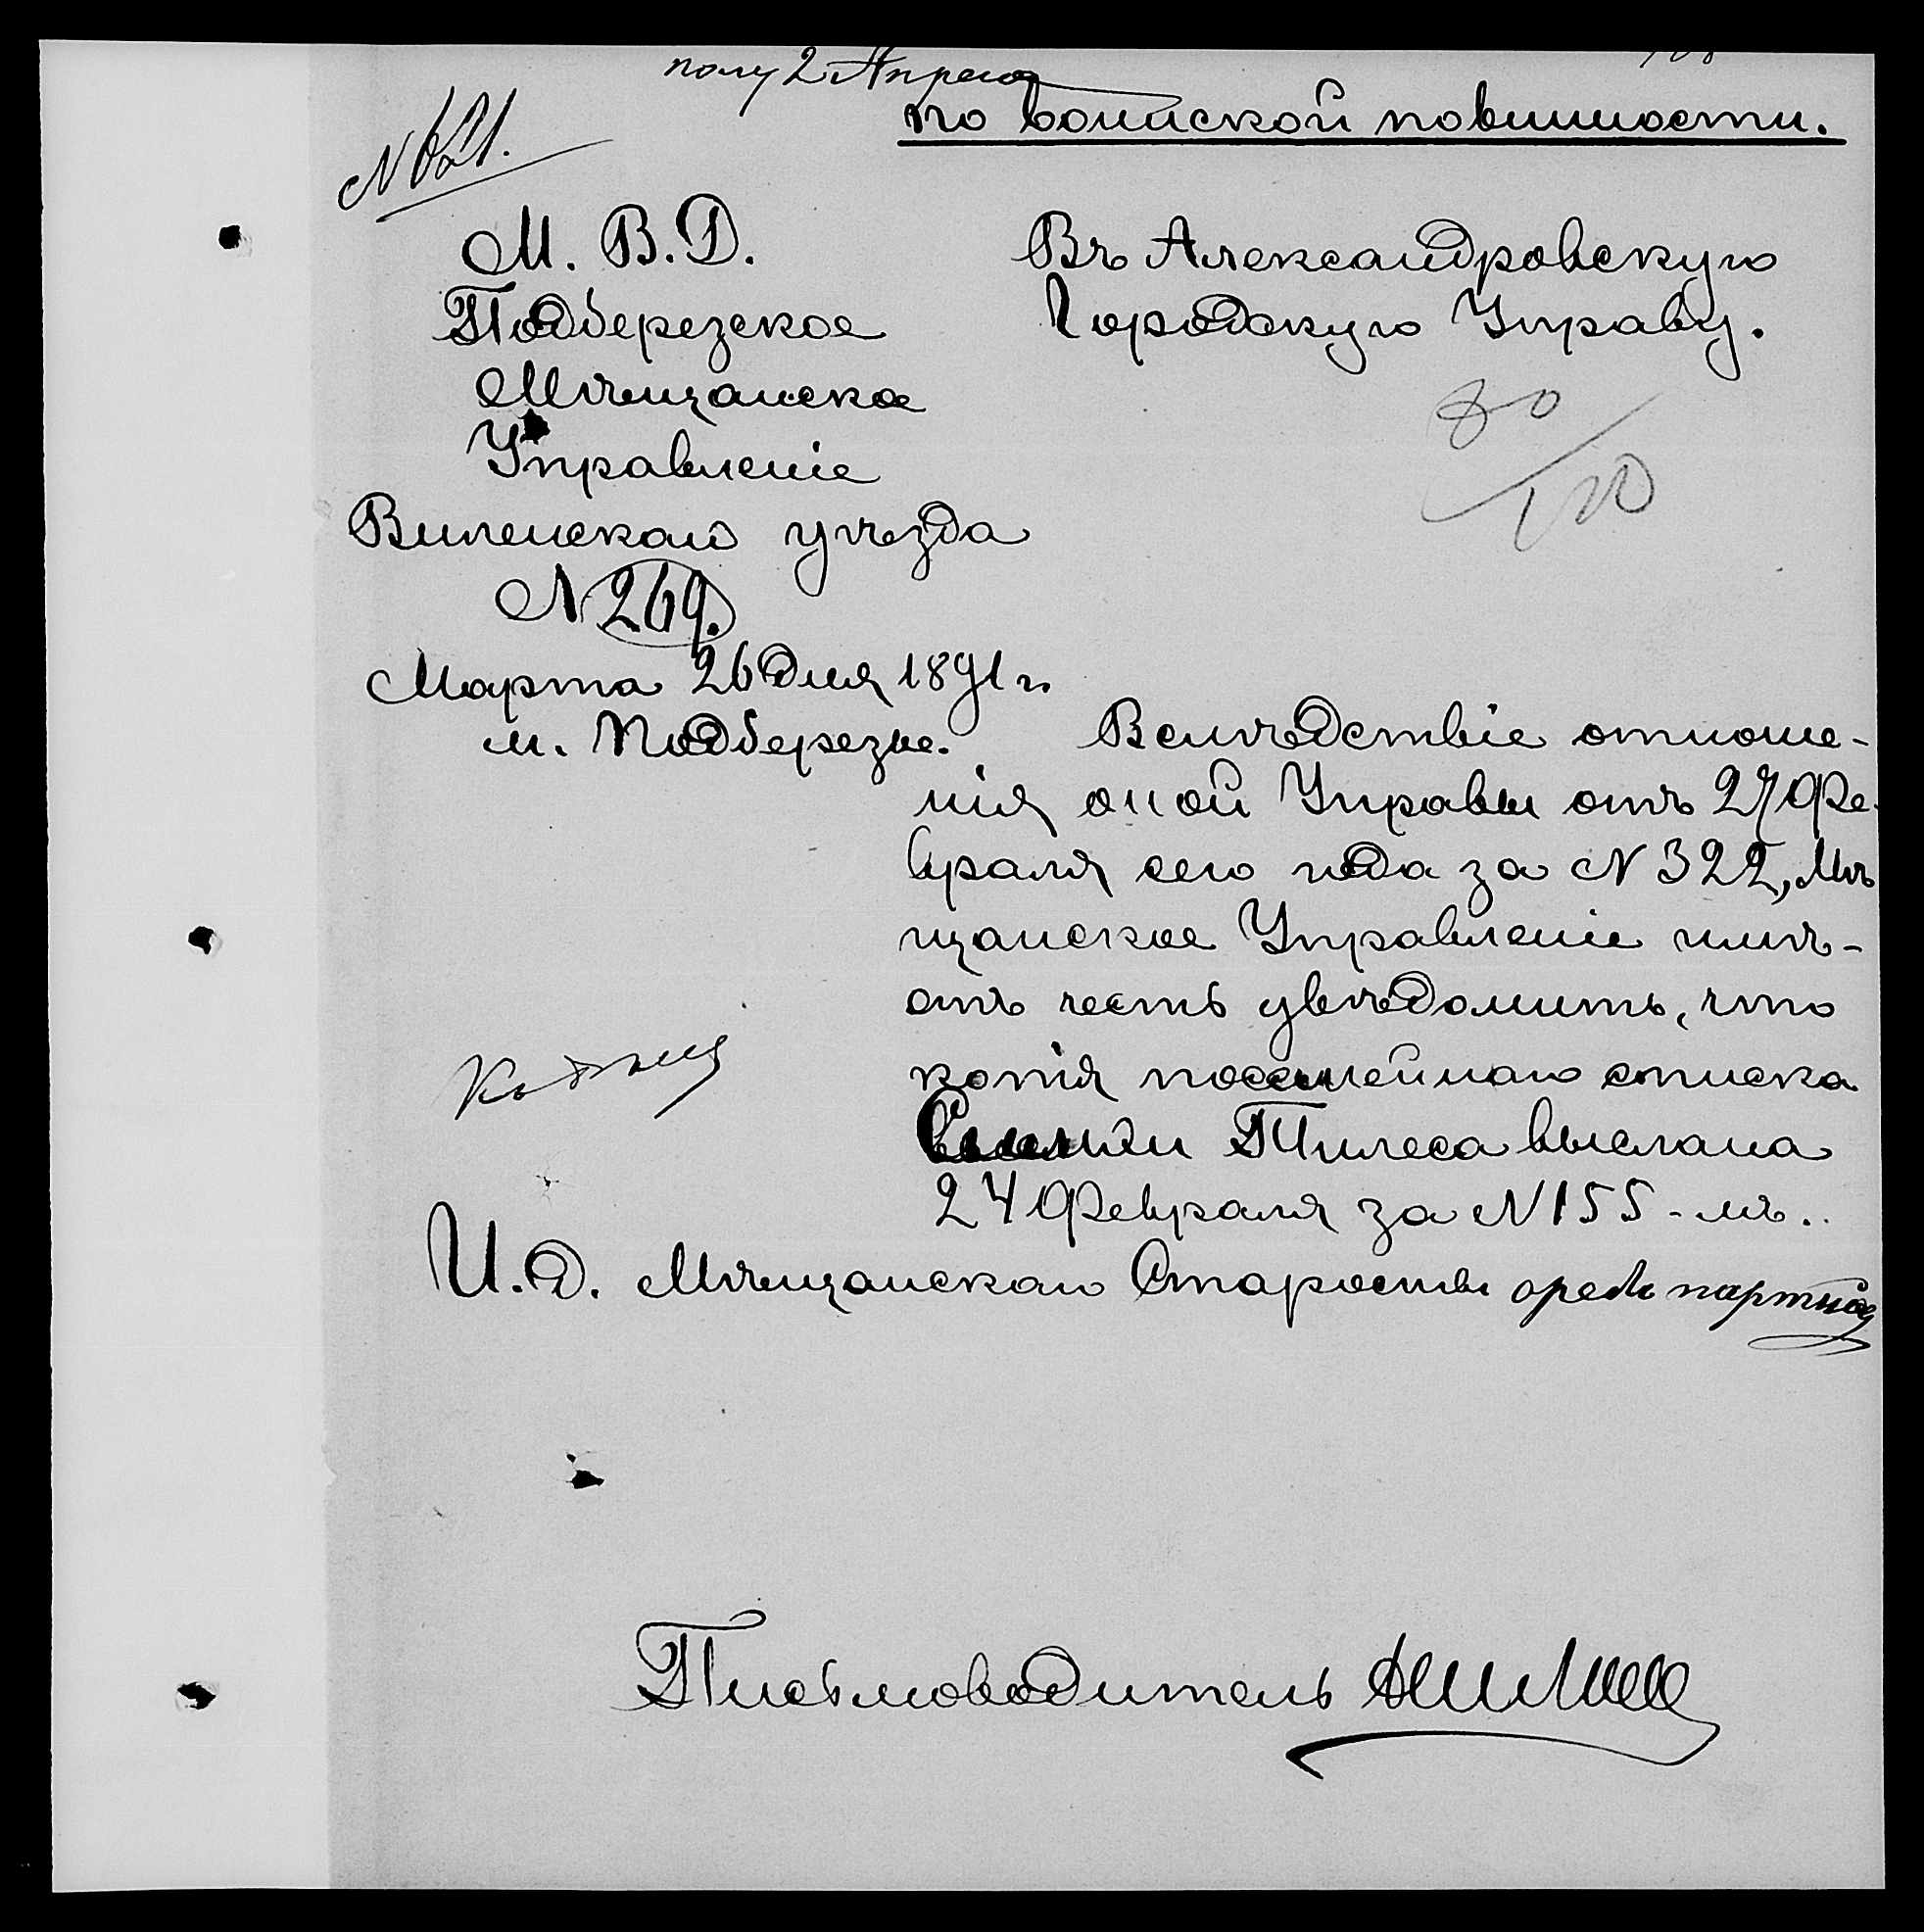 полу 2 Апреля
по воинской повинности.
№ 621.
М. В. Д.
Подберезское
Мѣщанское
Управленіе
Виленскаго уѣзда
№ 269.
Марта 26 дня 1891 г.
м. Подберезье.
Въ Александровскую
Городскую Управу.
80
Вслѣдствіе отноше-
нія оной Управы отъ 27 Фе-
враля сего года за № 322, Мѣ
щанское Управленіе имѣ-
етъ честь увѣдомить, что
копія посемейнаго списка
Пилеса выслана
24 Февраля за № 155-мъ..
Къ дѣлу
И. Д. Мѣщанскаго Старосты
Письмоводитель